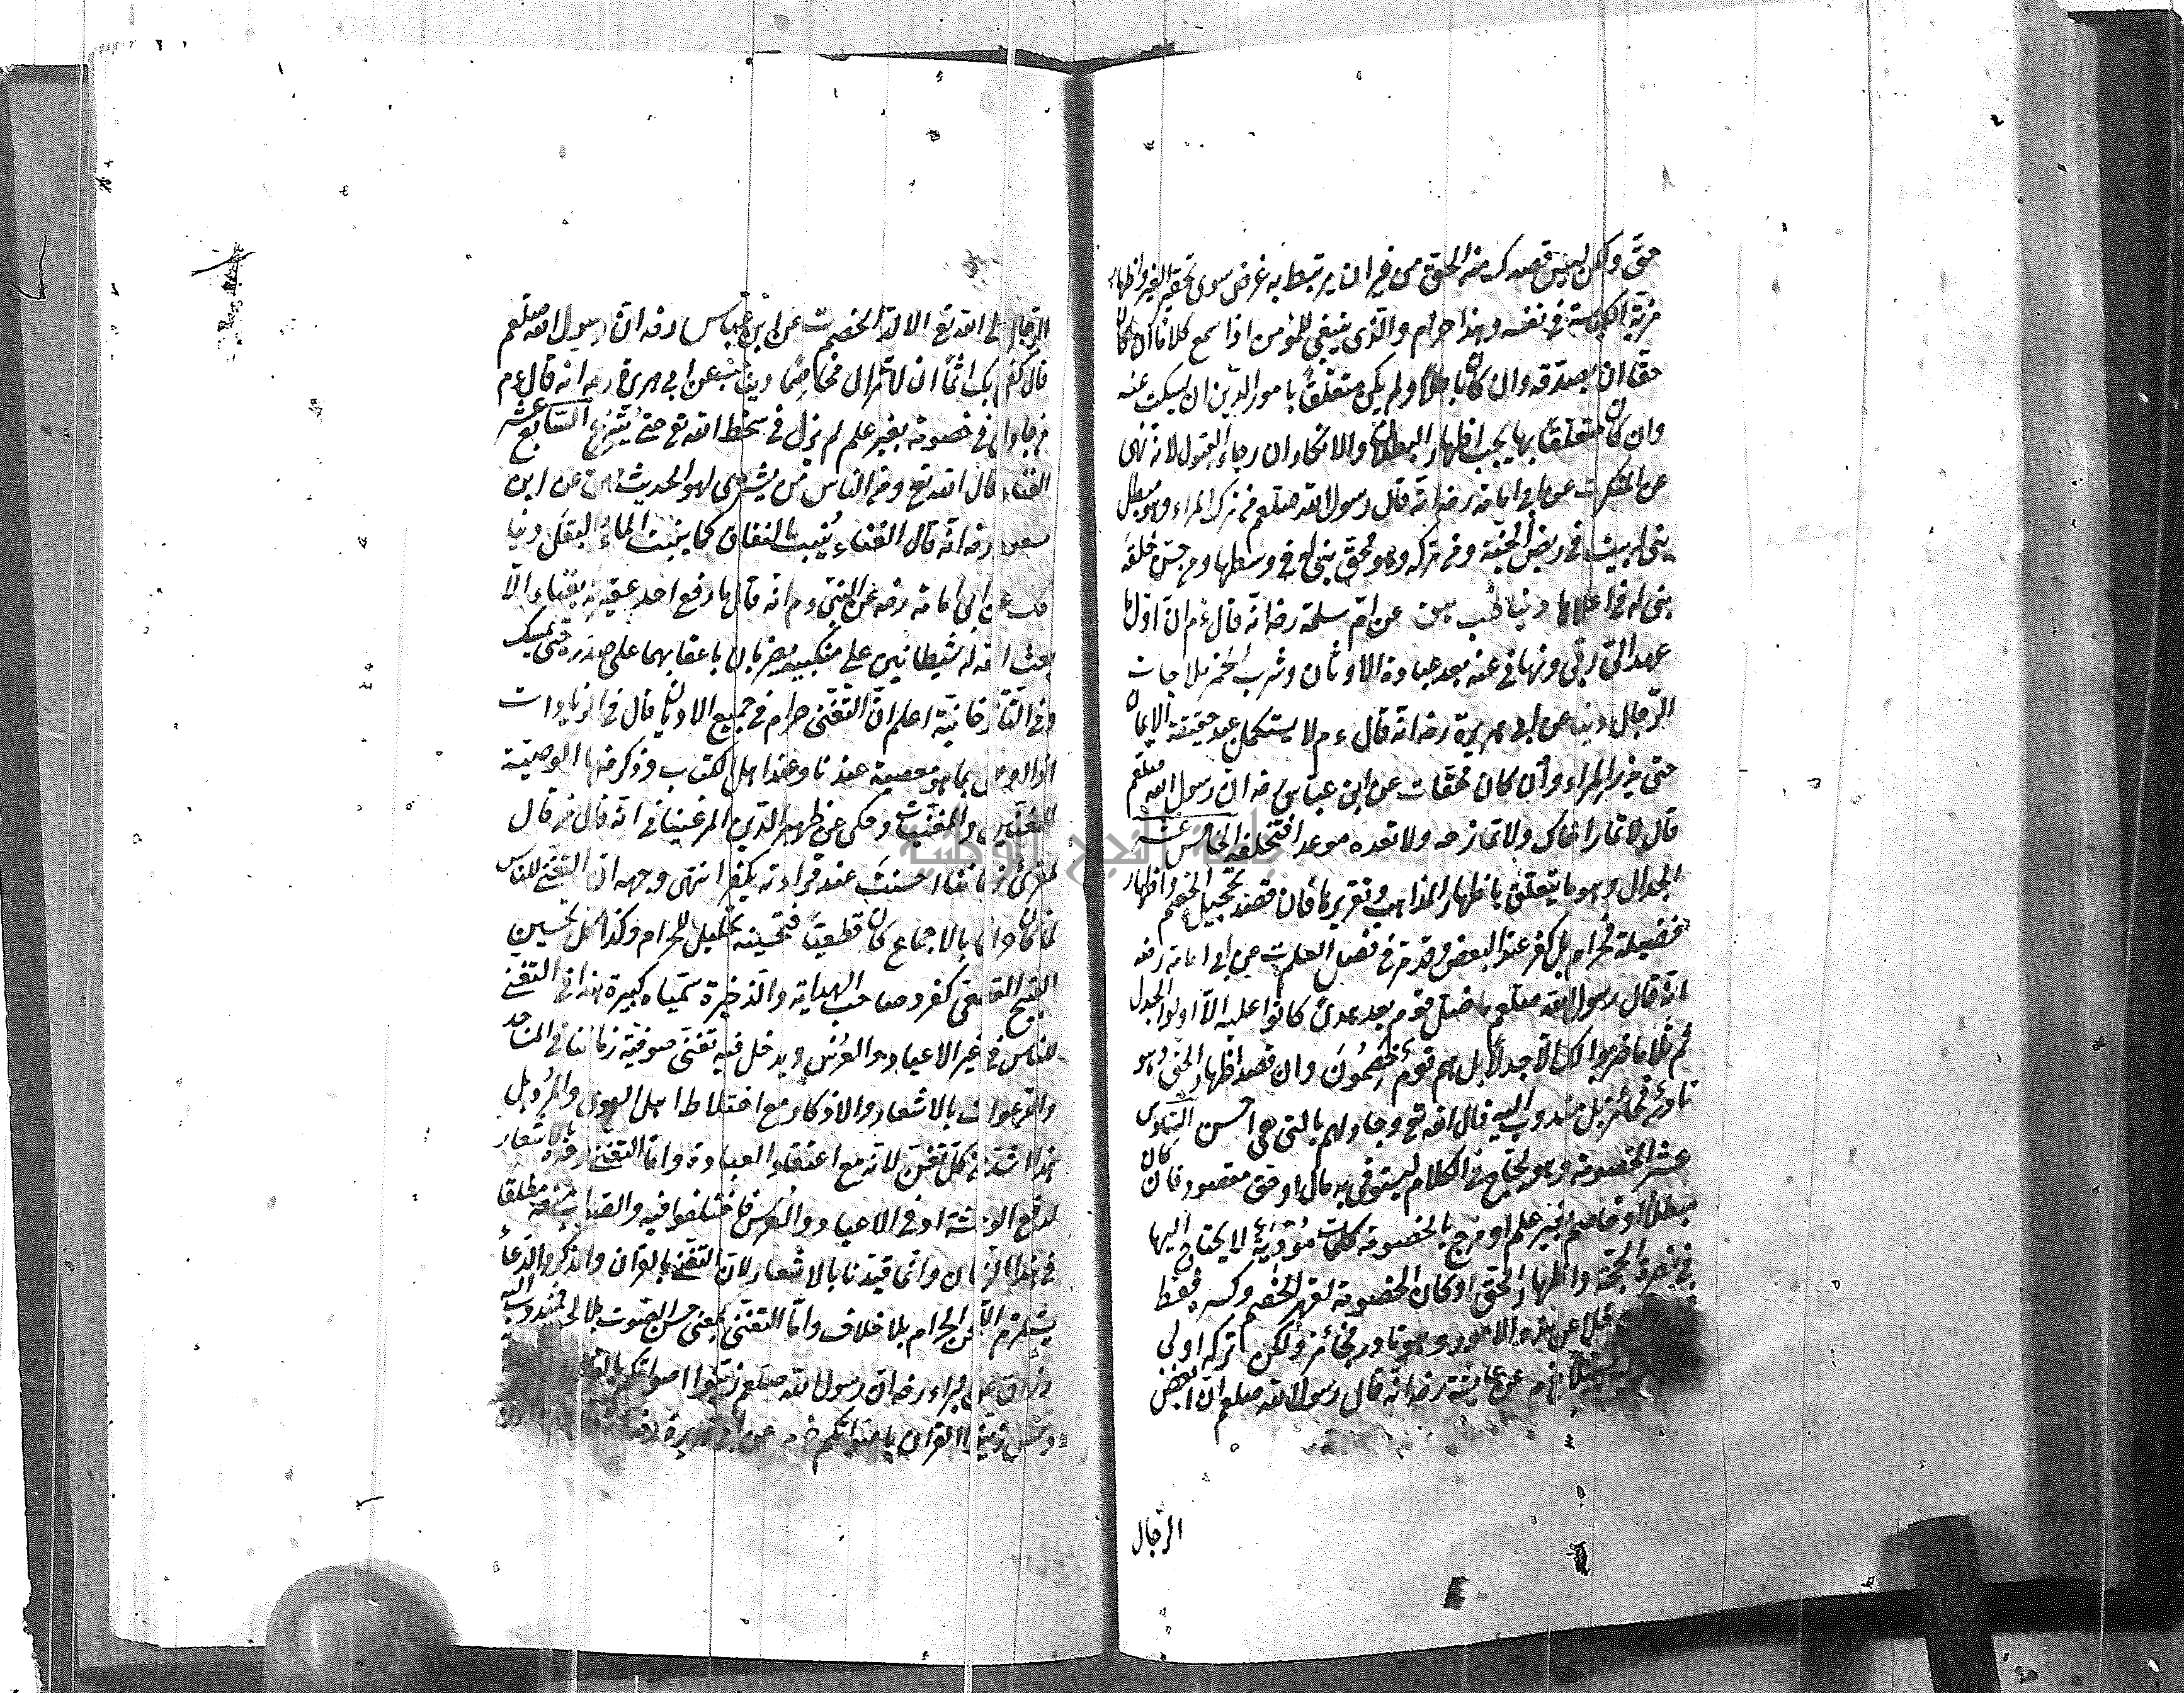 حق ولكن ليس قصدك منه الحق من غير ان يرتبط به غرض سوى تحقير الغير واظهار
مزية الكياسة في نفسه وهذا حرام والذي ينبغي للمؤمن اذا سمع كلاما ان كان
حقا ان يصدقه وان كان باطلا ولم يكن متعلقا بامور الدين ان يسكت عنه
وان كان متعلقا بها يجب اظهار البطلان والانكار ان رجاء القبول لانه نهى
عن المنكر ت عن ابي امامة رضه انه قال رسول الله صلعم من ترك المراء وهو مبطل
بنى له بيت في ربض الجنة ومن تركه وهو محق بنى له في وسطها ومن حسن خلقه
بنى له في اعلاها دنيا طب هق عن ام سلمة رضه انه قال ءم ان اول ما
عهد الي ربي ونهاني عنه بعد عبادة الاوثان وشرب الخمر ملاحات
الرجال دنيا عن ابي هريرة رضه انه قال ءم لا يستكمل عبد حقيقة الايمان
حتى يذر المراء وان كان محقا ت عن ابن عباس رضه ان رسول الله صلعم
قال لا تمار اخاك ولا تمازحه ولا تعده موعدا فتخلفه الخامس عشر
الجدال وهو ما يتعلق باظهار المذاهب وتقريرها فان قصد تخجيل الخصم واظهار
فضيلة فحرام بل كفر عند البعض وقد مر في فصل العلم ت عن ابي امامة رضه
انه قال رسول الله صلعم ما ضل قوم بعد هدى كانوا عليه الا اوتوا الجدل
ثم تلا ما ضربوا لك الا جدلا بل هم قوم خصمون وان قصد اظهار الحق وهو
نادر فجائز بل مندوب اليه قال الله تع وجادلهم بالتي هي احسن السادس
عشر الخصومة وهو لجاج في الكلام ليستوفي به مال او حق مقصود فان كان
مبطلا او خاصم بغير علم او مزج بالخصومة كلمات مؤذية لا يحتاج اليها
في نصرة الحجة واظهار الحق او كان الخصومة لقهر الخصم وكسره فقط
عن هذه الامور وهو نادر فجائز ولكن تركه اولى
خ م عن عايشة رضه انه قال رسول الله صلعم ان ابغض
الرجال
الرجال الى الله تع الالد الخصم ت عن ابن عباس رضه ان رسول الله صلعم
قال كفى بك اثما ان لا تزال مخاصما دنيا عن ابي هريرة رضه انه قال ءم
من جادل في خصومة بغير علم لم يزل في سخط الله تع حتى ينزع السابع عشر
الغناء قال الله تع ومن الناس من يشتري لهو الحديث هق عن ابن
مسعود رضه انه قال الغناء ينبت النفاق كما ينبت الماء البقل دنيا
عن ابي امامة رضه عن النبي ءم انه قال ما رفع احد عقيرته بغناء الا
بعث الله له شيطانين على منكبيه يضربان باعقابهما على صدره حتى يمسك
وفي التاتارخانية اعلم ان التغني حرام في جميع الاديان قال في الزيادات
اذا اوصى بما هو معصية عندنا وعند اهل الكتاب وذكر منها الوصية
للمغنين والمغنيات وحكى عن ظهير الدين المرغيناني انه قال من قال
لمقرئ زماننا احسنت عند قرائته يكفر انتهى وجهه ان التغني للناس
لما كان حراما بالاجماع كان قطعيا فتحسينه تحليل للحرام وكذا كل تحسين
القبيح القطعي كفر وصاحب الهداية والذخيرة سمياه كبيرة هذا في التغني
للناس في غير الاعياد والعرس ويدخل فيه تغني صوفية زماننا في المساجد
والدعوات بالاشعار والاذكار مع اختلاط اهل الهوى والمرد بل
هذا اشد من كل تغن لانه مع اعتقاد العبادة واما التغني وحده بالاشعار
لدفع الوحشة او في الاعياد والعرس فاختلفوا فيه والصواب منعه مطلقا
في هذا الزمان وانما قيدنا بالاشعار لان التغني بالقرآن والذكر والدعاء
يستلزم اللحن الحرام بلا خلاف واما التغني بمعنى حسن الصوت بلا لحن فمندوب اليه
عن البراء رضه ان رسول الله صلعم زينوا اصواتكم بالقرآن
زينوا القرآن باصواتكم خ م عن ابي هريرة رضه